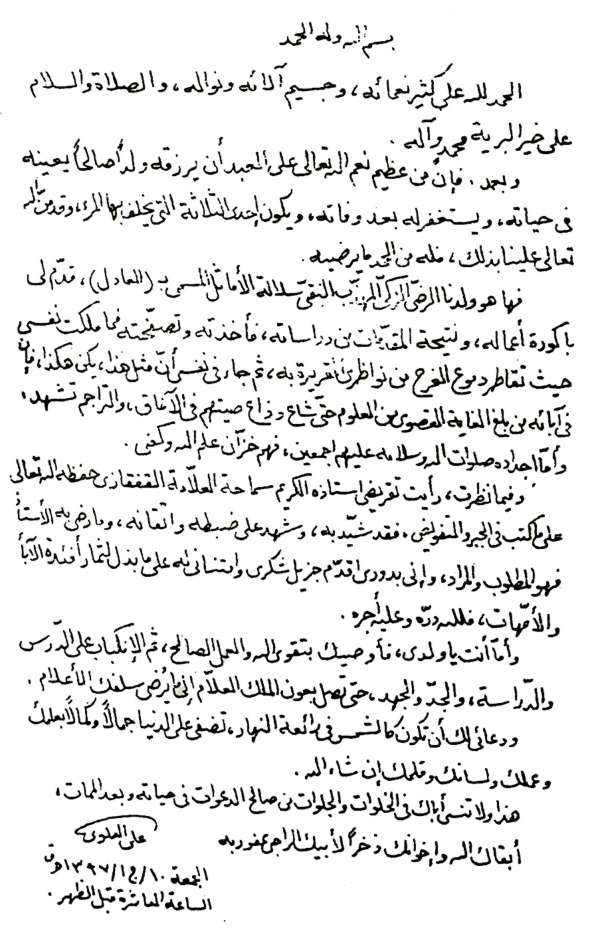 بسم الله وله الحمد
الحمد لله على كثير نعمائه، وجسيم آلائه ونواله، والصلاة والسلام
على خير البرية محمد وآله.
وبعد. فإنّ من عظيم نعم الله تعالى على العبد أن يرزقه ولداً صالحاً يعينه
في حياته، ويستغفر له بعد وفاته، ويكون إحدى الثلاثة التي يخلف بها المرء، وقد منّ الله
تعالى علينا بذلك، فله من الحمد ما يرضيه.
فها هو ولدنا الرضيّ الزكيّ المهذّب النقيّ سلالة الأماثل المسمى بـ (العادل)، قدّم لي
باكورة أعماله، ونتيجة المقدّمات من دراساته، فأخذته وتصفّحته فما ملكت نفسي
حيث تقاطر دموع الفرح من نواظري القريرة به، ثم جاء في نفسي أنّ مثل هذا، يكن هكذا، فإن
في آبائه من بلغ الغاية القصوى من العلوم حتّى شاع وذاع صيتهم في الآفاق، والتراجم تشهد،
وأمّا أجداده صلوات الله وسلامه عليهم اجمعين، فهم خزّان علم الله وكفى.
وفيما نظرت، رأيت تقريض استاذه الكريم سماحة العلّامة القفقازي حفظه الله تعالى
على ما كتب في الجبر والتفويض، فقد شيّد به، وشهد على ضبطه واتقانه، وما رضي به الأستاذ
فهو المطلوب والمراد، وإني بدوري اقدّم جزيل شكري وامتناني له على ما بذل لثمار أفئدة الآباء
والأمّهات، فلله درّه وعليه أجره.
وأمّا أنت يا ولدي، فأوصيك بتقوى الله والعمل الصالح، ثم الإنكباب على الدّرس
والدّراسة، والجدّ والجهد، حتّى تصل بعون الملك العلّام إلى ما يرضي سلفك الأعلام.
ودعائي لك أن تكون كالشمس في رائعة النهار، تضفي على الدنيا جمالاً وكمالاً بعلمك
وعملك ولسانك وقلمك إن شاء الله.
هذا ولا تنسَ أباك في الخلوات والجلوات من صالح الدعوات في حياته وبعد الممات،
أبقاك الله وإخوانك ذخراً لأبيك الراجي عفو ربه
علي العلوي
الجمعة ١٠/ج١/١٣٩٧هـ ق
الساعة العاشرة قبل الظهر.